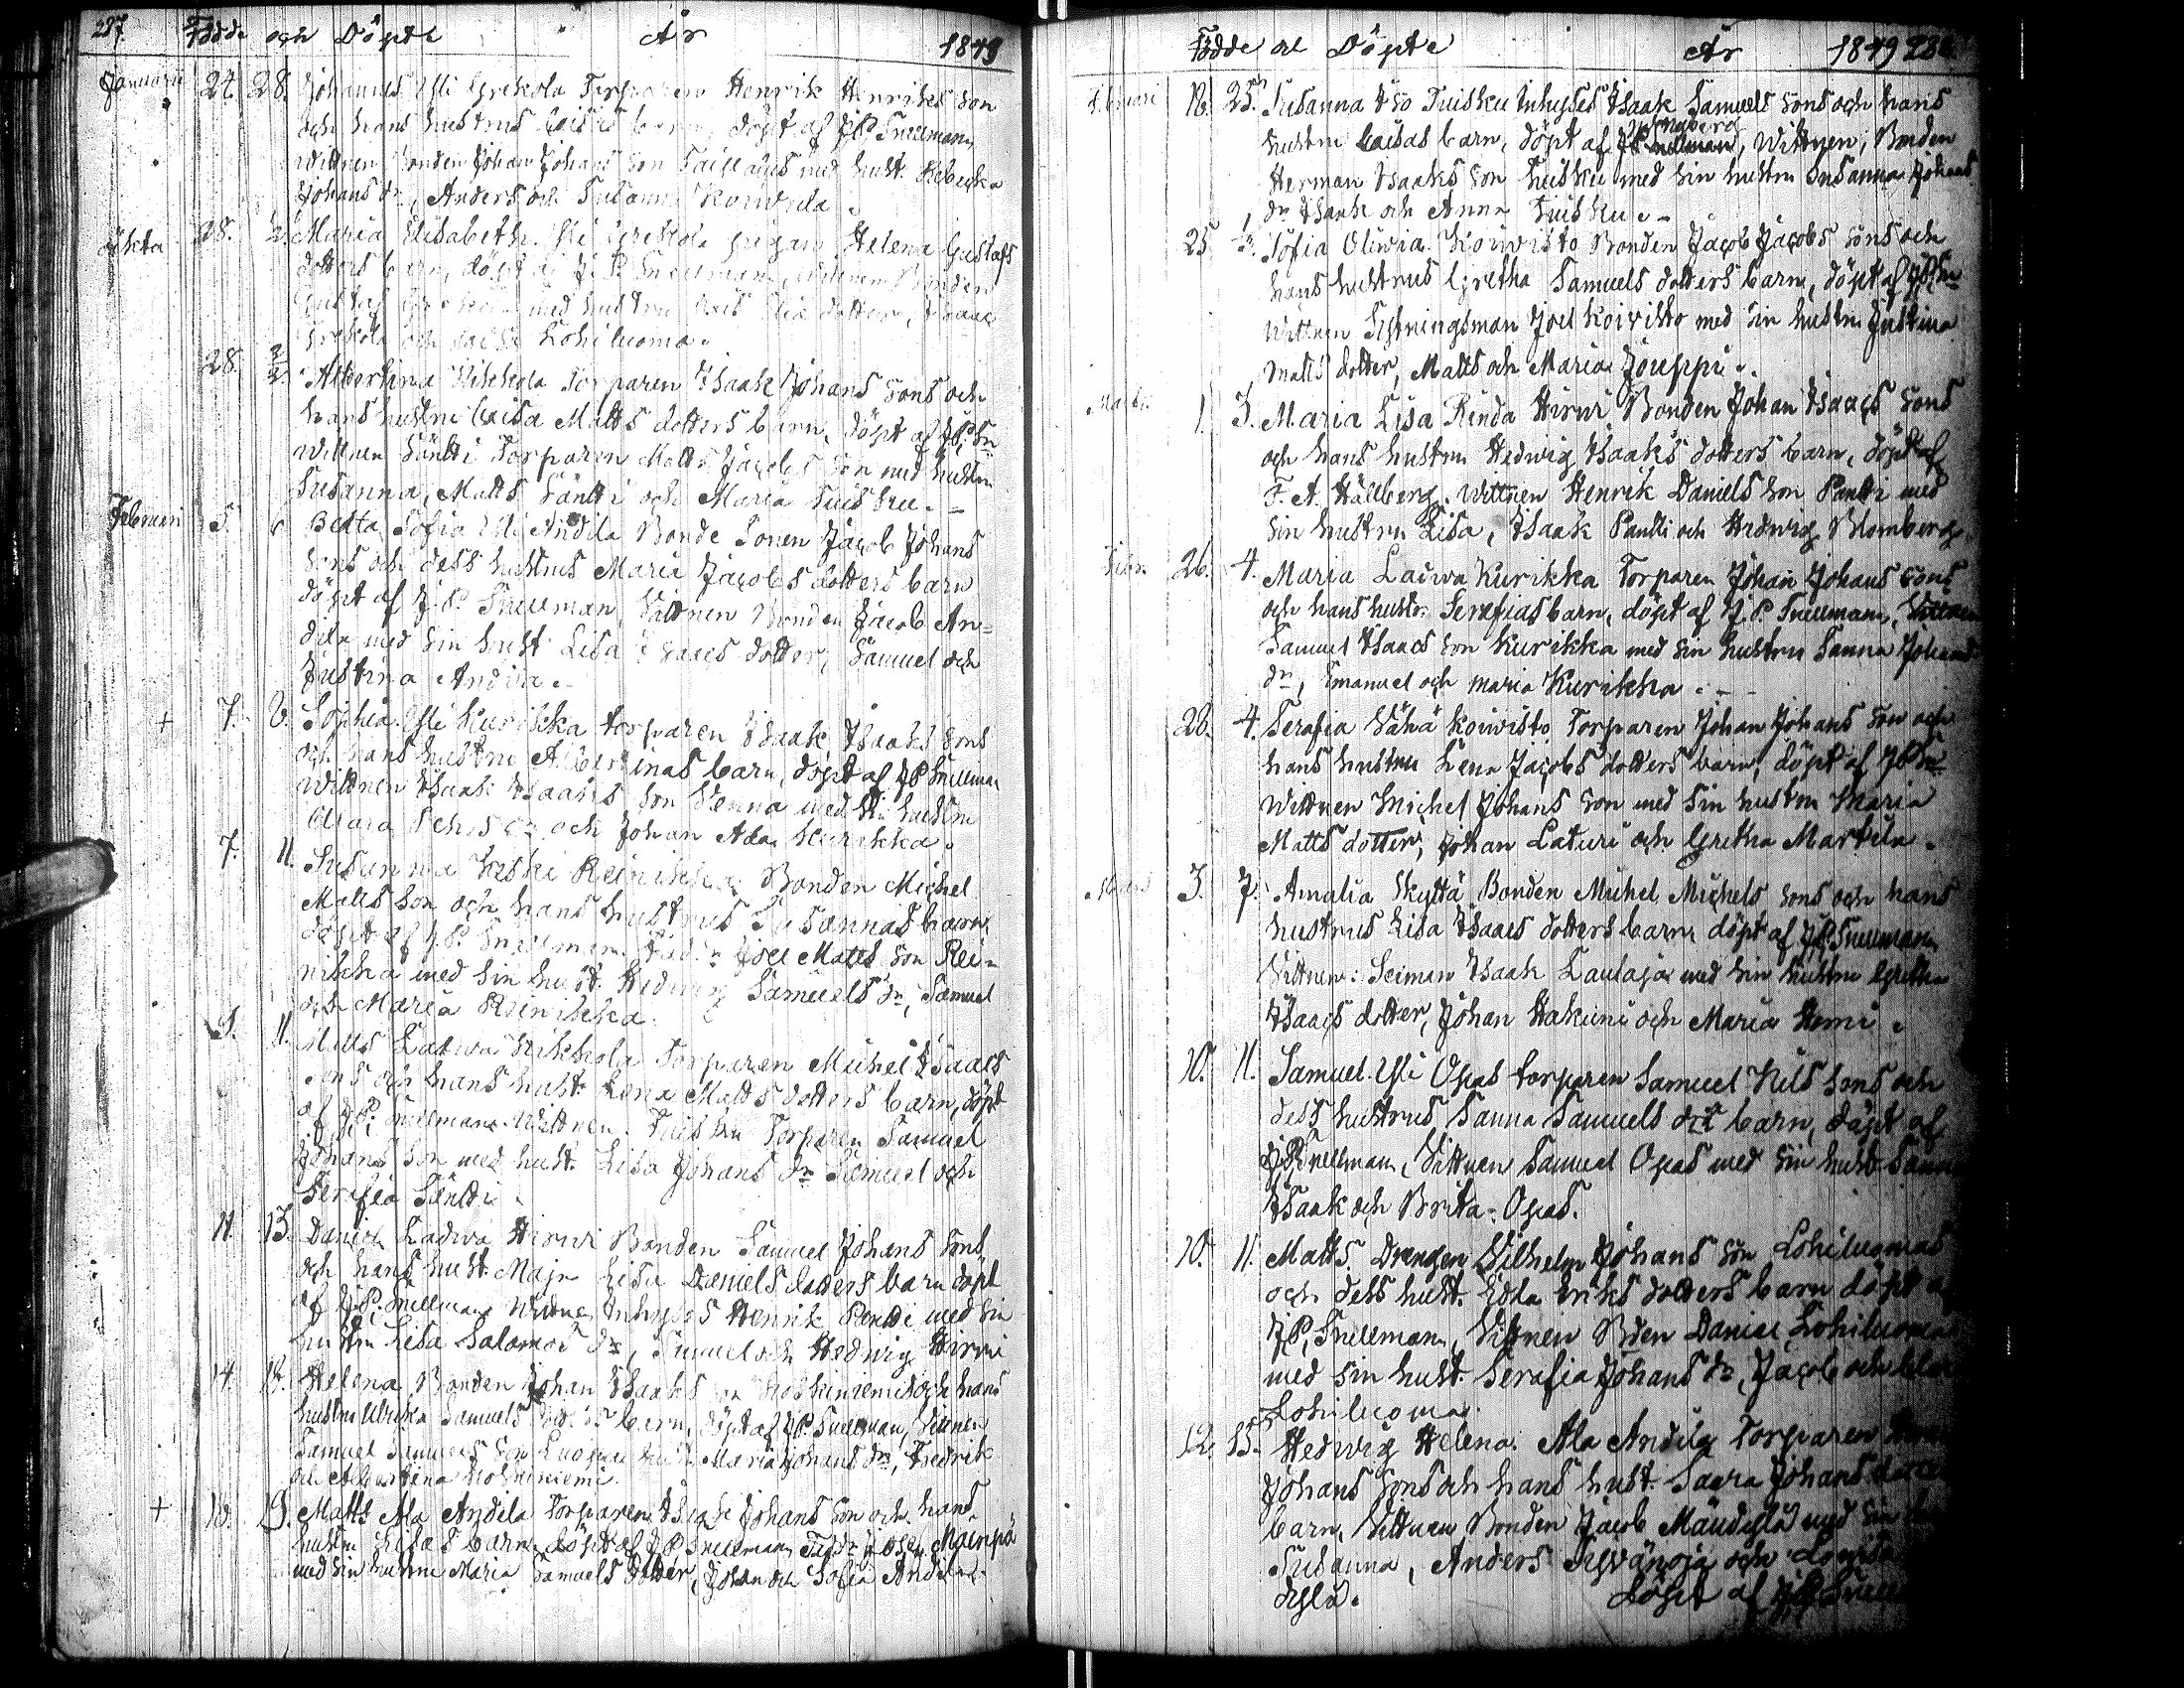 287. Födde och Döpte År 1849
Januarii 24. 28. Johannes Yli Grekola Torparen Henrik Henriks son
och hans hustrus Caisas barn, döpt af J.P. Snellman,
Wittnen Bonden Johan Johans son med hust. Rebecka
Johans dr, Anders och Susanna Koivula.
oäkta 28. 2. Maria Elisabeth. Yli Grekola pigan Helena Gustafs
dotters barn, döpt af J. P. Snellman, Wittnen Bonden
Gustaf Grekola med hustru dotter, Isaac
Grekola och Caisa Lohiluoma.
28. 2/2. Albertina Nikkola Torparen Isaak Johans sons och
hans hustru Caisa Matts dotters barn, döpt af J.P. Sn
Wittnen Säntti Torparen Matts Jacobs son med hustru
Susanna, Matts Säntti och Maria Tuisku.
Februari 5. 6 Beata Sofia Yli Andila Bonde Sonen Jacob Johans
sons och dess hustrus Maria Jacobs dotters barn
döpt af J. P. Snellman, Vittnen Bonden Jacob An=
dila med sin hust. Lisa Isaacs dotter, Samuel och
Justina Andila.
+ 7. 8. Sophia. Yli Kurikka torparen Isaak Isaaks sons
och hans hustru Albertinas barn, döpt af J P Snellman
Wittnen Isaak Isaaks son Wenna med sin hustru
och Johan Ala Kurikka.
7. 11. Susanna Keski Reinikka Bonden Michel
Matts son och hans hustrus Susannas barn,
döpt af J.P. Snellman. Joel Matts son Rei=
nikka med sin hust. Hedwig Samuels dr, Samuel
och Maria Reinikka.
9. 11. Matts Latwa Nikkola Torparen Michel Isaacs
sons och hans hust. Lena Matts dotters barn, döpt
af J.P. Snellman. Wittnen. Tuisku Torparen Samuel
Johans son med hust. Lisa Johans dr Samuel och
Serafia Säntti.
11. 13. Daniel Latwa Hirwi Bonden Samuel Johans sons
och hans hust. Maja Lisa Daniels dotters barn döpt
af J.P. Snellman Wittnen Inhyses Henrik Pentti med sin
hustru Lisa Salomons dr, Samuel och Hedwig Hirwi
14. 18. Helena Bonden Johan Isaaks son Koskiniemis och hans
hustru Ulrika Samuels dotters barn, döpt af J P Snellman, Vittnen
Samuel Samuels son Luopa hust. Maria Johans dr, Fredrik
och Albertina Koskiniemi.
+ 18. 19. Matts Ala Andila Torparen Isaac Johans son och hans
hustru Lisas barn, döpt af J P Snellman, Josep Mainpä
med sin hustru Maria Samuels dotter, Johan och Sofia Andila.
Födde och Döpte År 1849 288
Februari 18. 25. Susanna Iso Tuisku Inhyses Isaak Samuels sons och hans
hustru Caisas barn, döpt af J P Snellman, Wittnen, Bonden
Herman Isaaks son Tuisku med sin hustru Susanna Johans
dr, Isaak och Anna Tuisku.
25 Sofia Oliwia. Koiwisto Bonden Jacob Jacobs sons och
hans hustrus Gretha Samuels dotters barn, döpt af J P Sn
Wittnen Fjerdingsman Joel Koivisto med sin hustru Justina
Matts dotter, Matts och Maria Jouppi.
Martii 1. 3. Maria Lisa Rinda Hirwi Bonden Johan Isaacs sons
och hans hustru Hedwig Isaaks dotters barn, döpt af
F. A. Hällberg. Wittnen Henrik Daniels son Pantti med
sin hustru Lisa, Isaak Pantti och Hedwig Blomberg
Febr. 26. 4. Maria Latwa Kurikka Torparen Johan Johans sons
och hans hustr. Serafias barn, döpt af J. P. Snellman, Vittnen
Samuel Isaacs son Kurikka med sin hustru Sanna Johans
dr, Emanuel och Maria Kurikka.
28. 4. Serafia Wähä Koiwisto Torparen Johan Johans son och
hans hustru Lena Jacobs dotters barn, döpt af J P Sn
Wittnen Michel Johans son med sin hustru Maria
Matts dotter, Johan Laturi och Gretha Martila.
Mars 3. 7. Amalia Skyttä Bonden Michel Michels sons och hans
hustrus Lisa Isaacs dotters barn, döpt af J P Snellman,
Vittnen: Isaak Laulaja med sin hustru Gretha
Isaacs dotter, Johan Hakuni och Maria Hemi.
10. 11. Samuel. Yli Opas torparen Samuel Nils sons och
dess hustrus Sanna Samuels dr barn, döpt af
J P Snellman, Vittnen Samuel Opas med sin hust. Sanna
Isaak och Brita Opas.
10. 11. Matts. Drengen Wilhelm Johans son Lohiluomas
och dess hust. Edla Eriks dotters barn döpt af
J.P. Snellman, Vittnen Bden Daniel Lohiluoma
med sin hust. Serafia Johans dr, Jacob och
Lohiluoma.
12. 15. Hedwig Helena. Ala Andila Torparen
Johans sons och hans hust. Saara Johans dotters
barn, Vittnen Bonden Jacob Mändylä med sin
Susanna, Anders och Lovisa
dylä. Döpt af J.P. Snell